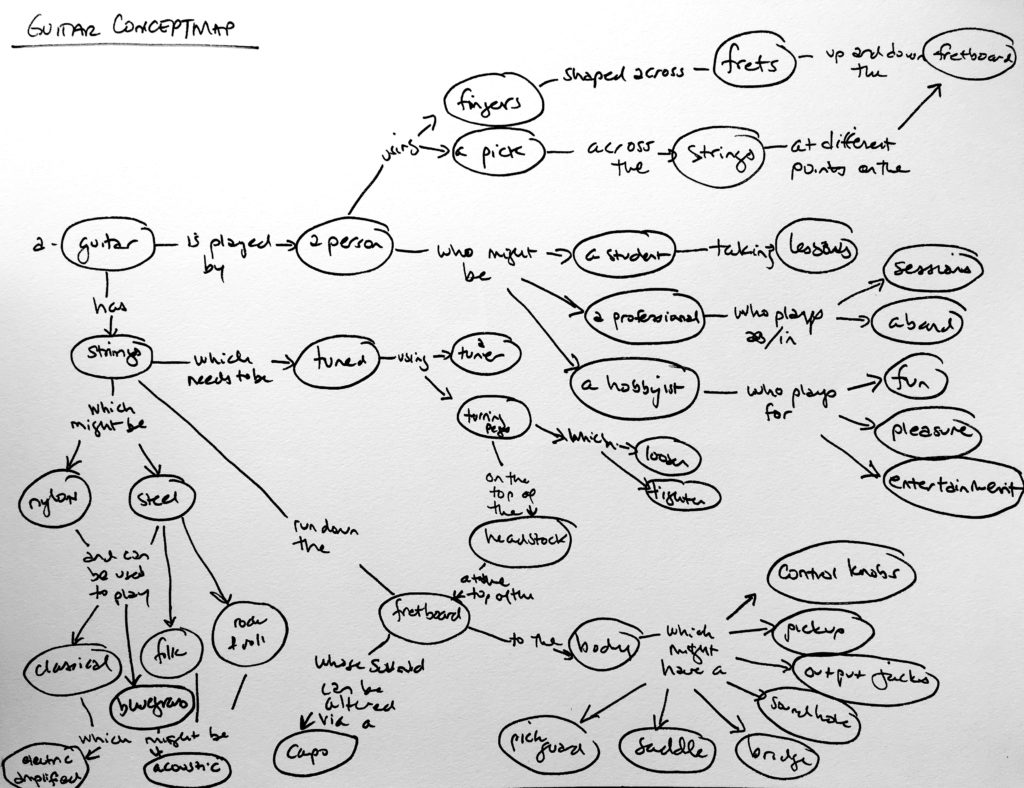 GUITAR CONCEPTMAP
fingers
shaped across
frets
up and down
the
fretboard
using
a pick
across
the
strings
at different
points on the
a
guitar
is played
by
a person
who might
be
a student
taking
lessons
a professional
who plays
as/in
sessions
a band
a hobbyist
who plays
for
fun
pleasure
entertainment
has
strings
which
needs to be
tuned
using
a
tuner
turning
pegs
which
loosen
tighten
on the
top of
the
headstock
at the
top of the
which
might be
nylon
steel
run down
the
fretboard
and can
be used
to play
classical
bluegrass
folk
rock
& roll
which might be
electric
amplified
acoustic
whose sound
can be
altered
via a
capo
to the
body
which
might
have a
control knobs
pickup
output jacks
soundhole
bridge
saddle
pick
guard